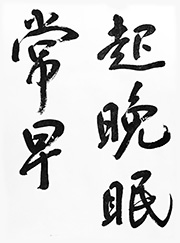 起晚眠
常早